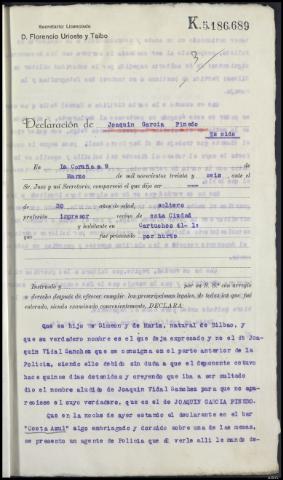 Secretario Licenciado
D. Florencio Urioste y Taibo
K.5.186.689
Declaración de Joaquin Garcia Pinedo
En la Coruña a 9 de
Marzo de mil novecientos treinta y seis, ante el
Sr. Juez y mi Secretario, compareció el que dijo ser
de 30 años de edad, soltero
profesión impresor vecino de esta Ciudad
y habitante en Cartuchos 41-1º
que fué procesado por hurto
Instruído y por su S.ª con arreglo
a derecho después de ofrecer cumplir las prescripciones legales, de todas las que, fué
enterado, siendo examinado convenientemente, DECLARA:
Que es hijo de Simeon y de Maria, natural de Bilbao, y
que su verdadero nombre es el que deja expresado y no el de Joa-
quin Vidal Sanchez que se consigna en el parte anterior de la
Policia, siendo ello debido sin duda a que el deponente estuvo
hace quince dias detenido y creyendo que iba a ser multado
dió el nombre aludido de Joaquin Vidal Sanchez para que no apa-
reciese el suyo verdadero, que es el de JOAQUIN GARCIA PINEDO.
Que en la noche de ayer estando el declarante en el bar
"Costa Azul" algo embriagado y dormido sobre una de las mesas,
se presento un agente de Policia que al verle alli le mando de-